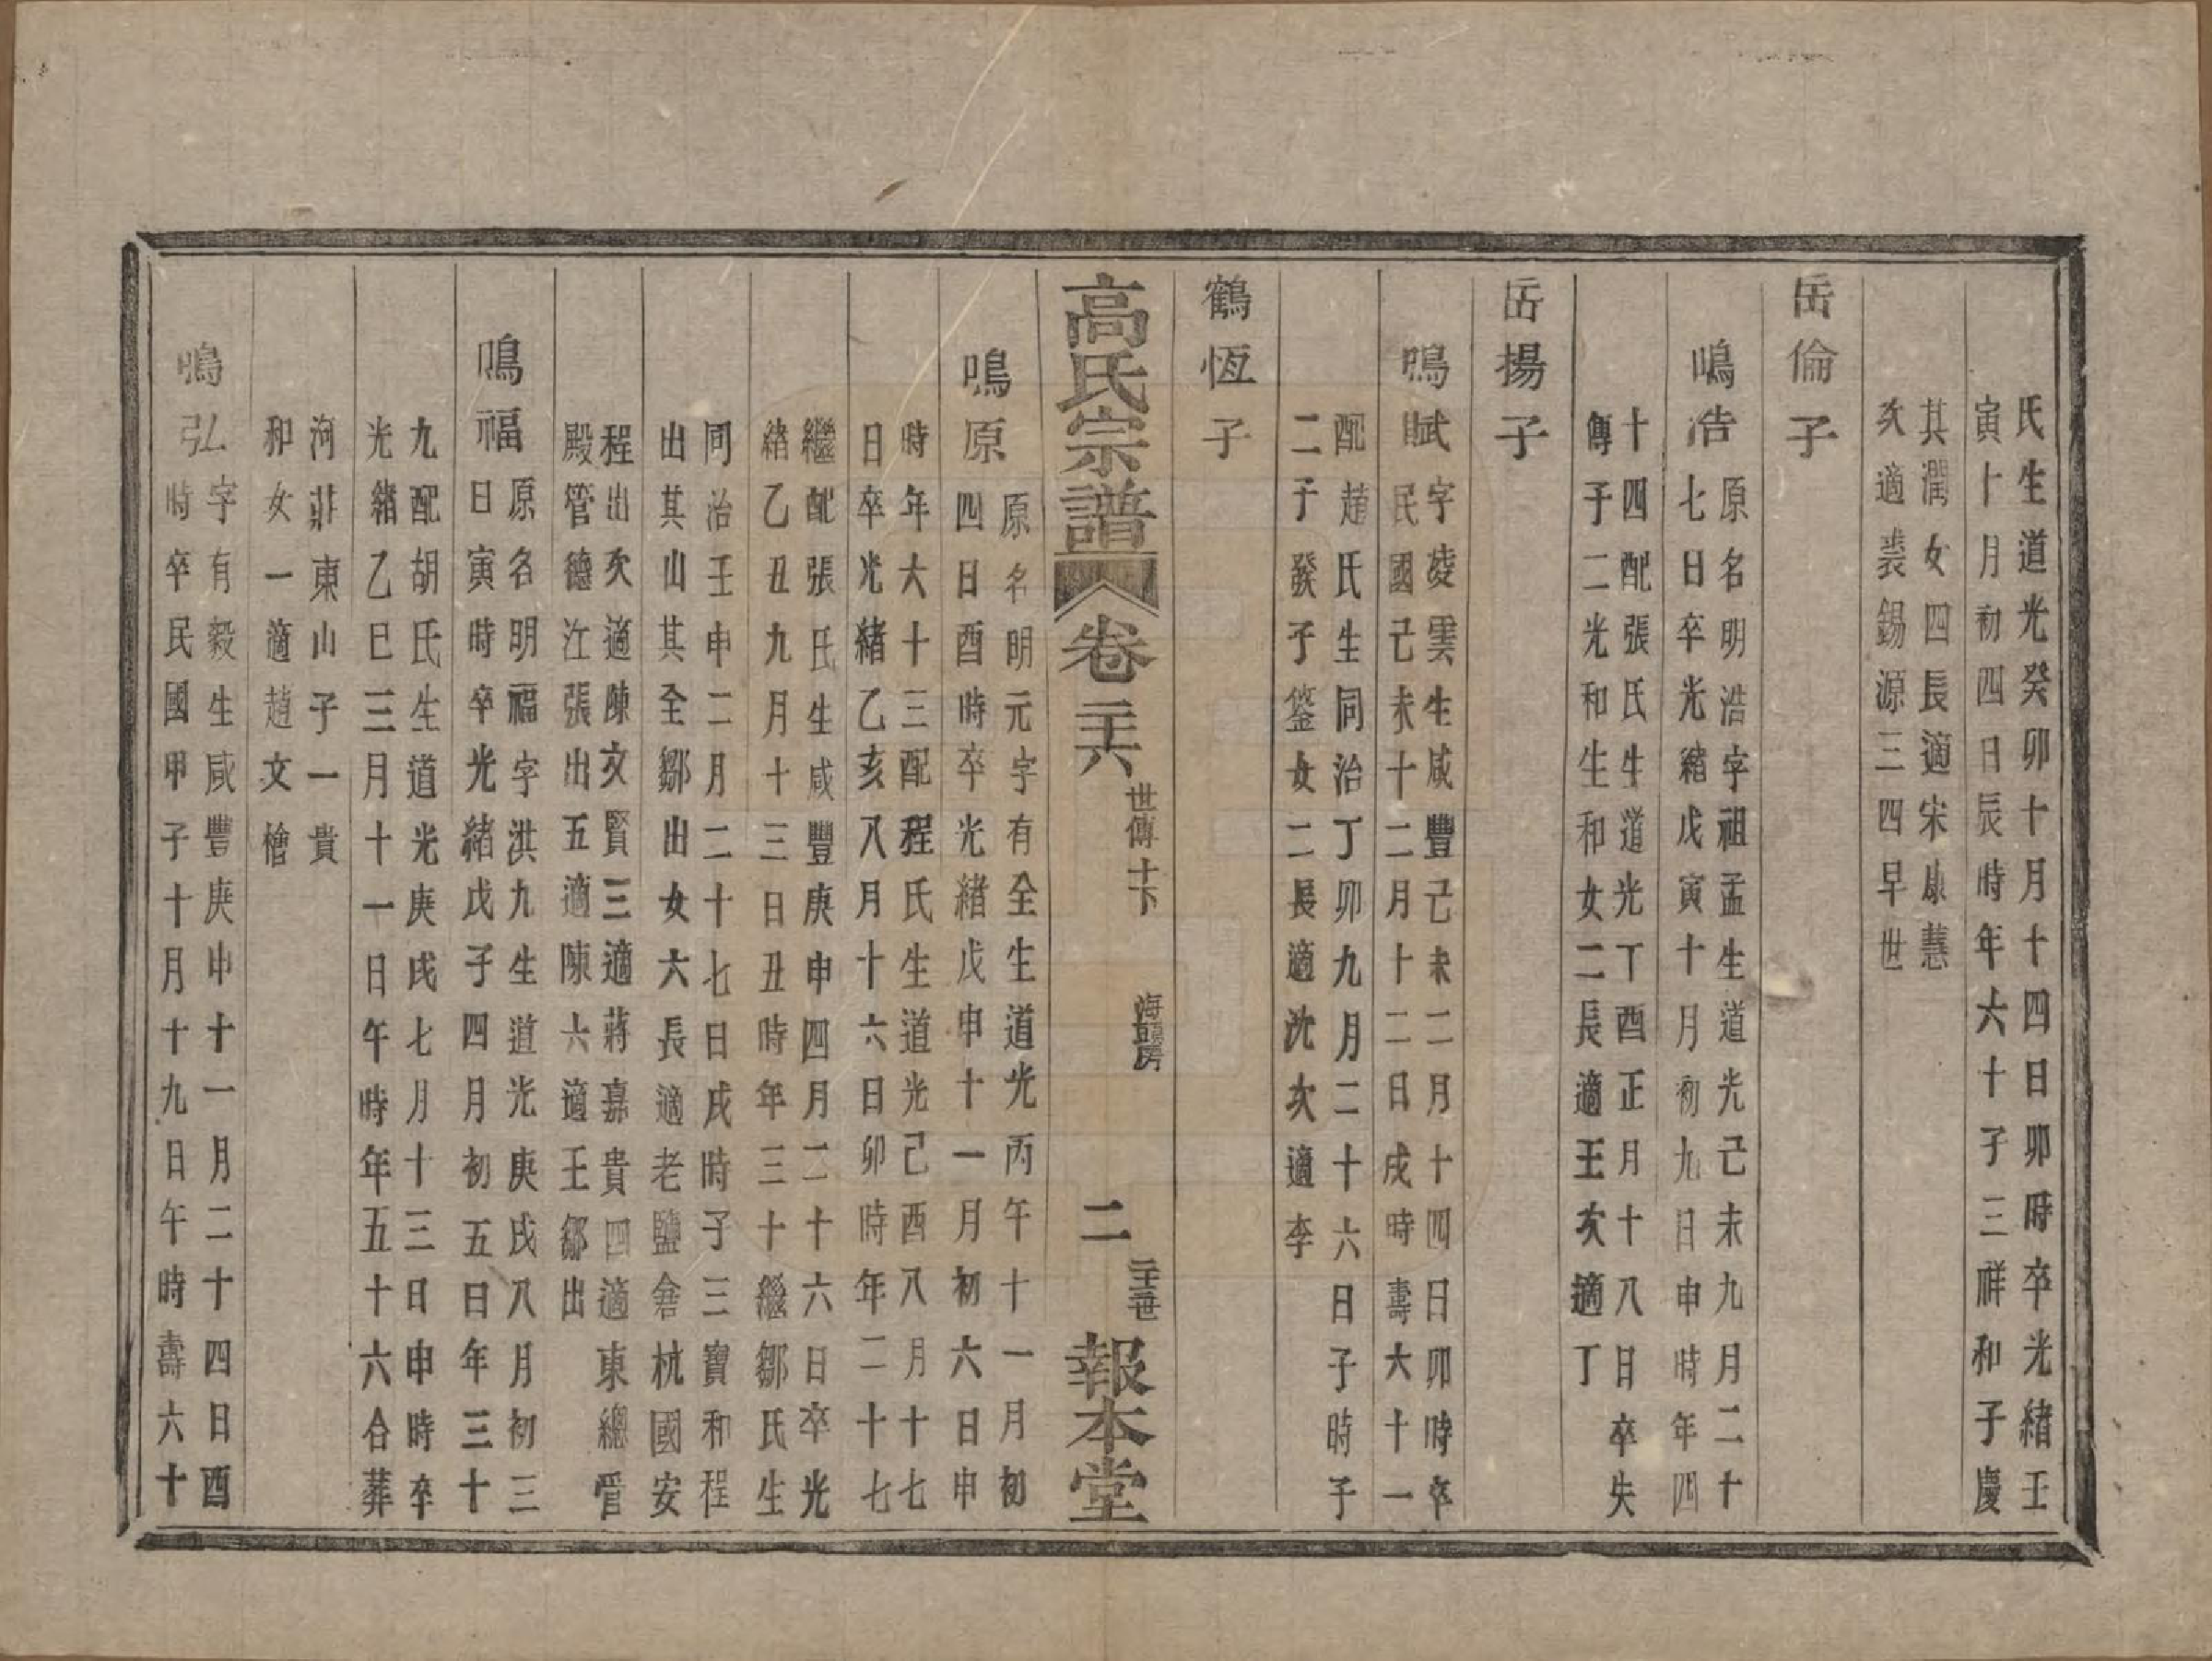 氏生道光癸卯十月十四日卯時卒光緒壬
寅十月初四日辰時年六十子三祥和子慶
其潤女四長適宋康慧
次適裴錫源三四早世
岳倫子
鳴浩
原名明浩字祖孟生道光己未九月二十
七日卒光緒戊寅十月初九日申時年四
十四配張氏生道光丁酉正月十八日卒失
傳子二光和生和女二長適王次適丁
岳揚子
鳴賦
字凌雲生咸豐己未二月十四日卯時卒
民國己未十二月十二日戌時壽六十一
配趙氏生同治丁卯九月二十六日子時子
二子發子鑒女二長適沈次適李
鶴恆子
高氏宗譜 卷三六 世傳十下 海頭房 二 二十世 報本堂
鳴原
原名明元字有全生道光丙午十一月初
四日酉時卒光緒戊申十一月初六日申
時年六十三配程氏生道光己酉八月十七
日卒光緒乙亥八月十六日卯時年二十七
繼配張氏生咸豐庚申四月二十六日卒光
緒乙丑九月十三日丑時年三十繼鄒氏生
同治壬申二月二十七日戌時子三寶和程
出其山其全鄒出女六長適老鹽倉杭國安
程出次適陳文賢三適蔣嘉貴四適東總管
殿管德江張出五適陳六適王鄒出
鳴福
原名明福字洪九生道光庚戌八月初三
日寅時卒光緒戊子四月初五日年三十
九配胡氏生道光庚戌七月十三日申時卒
光緒乙巳三月十一日午時年五十六合葬
河北東山子一貴
和女一適趙文檜
鳴弘
字有毅生咸豐庚申十一月二十四日酉
時卒民國甲子十月十九日午時壽六十